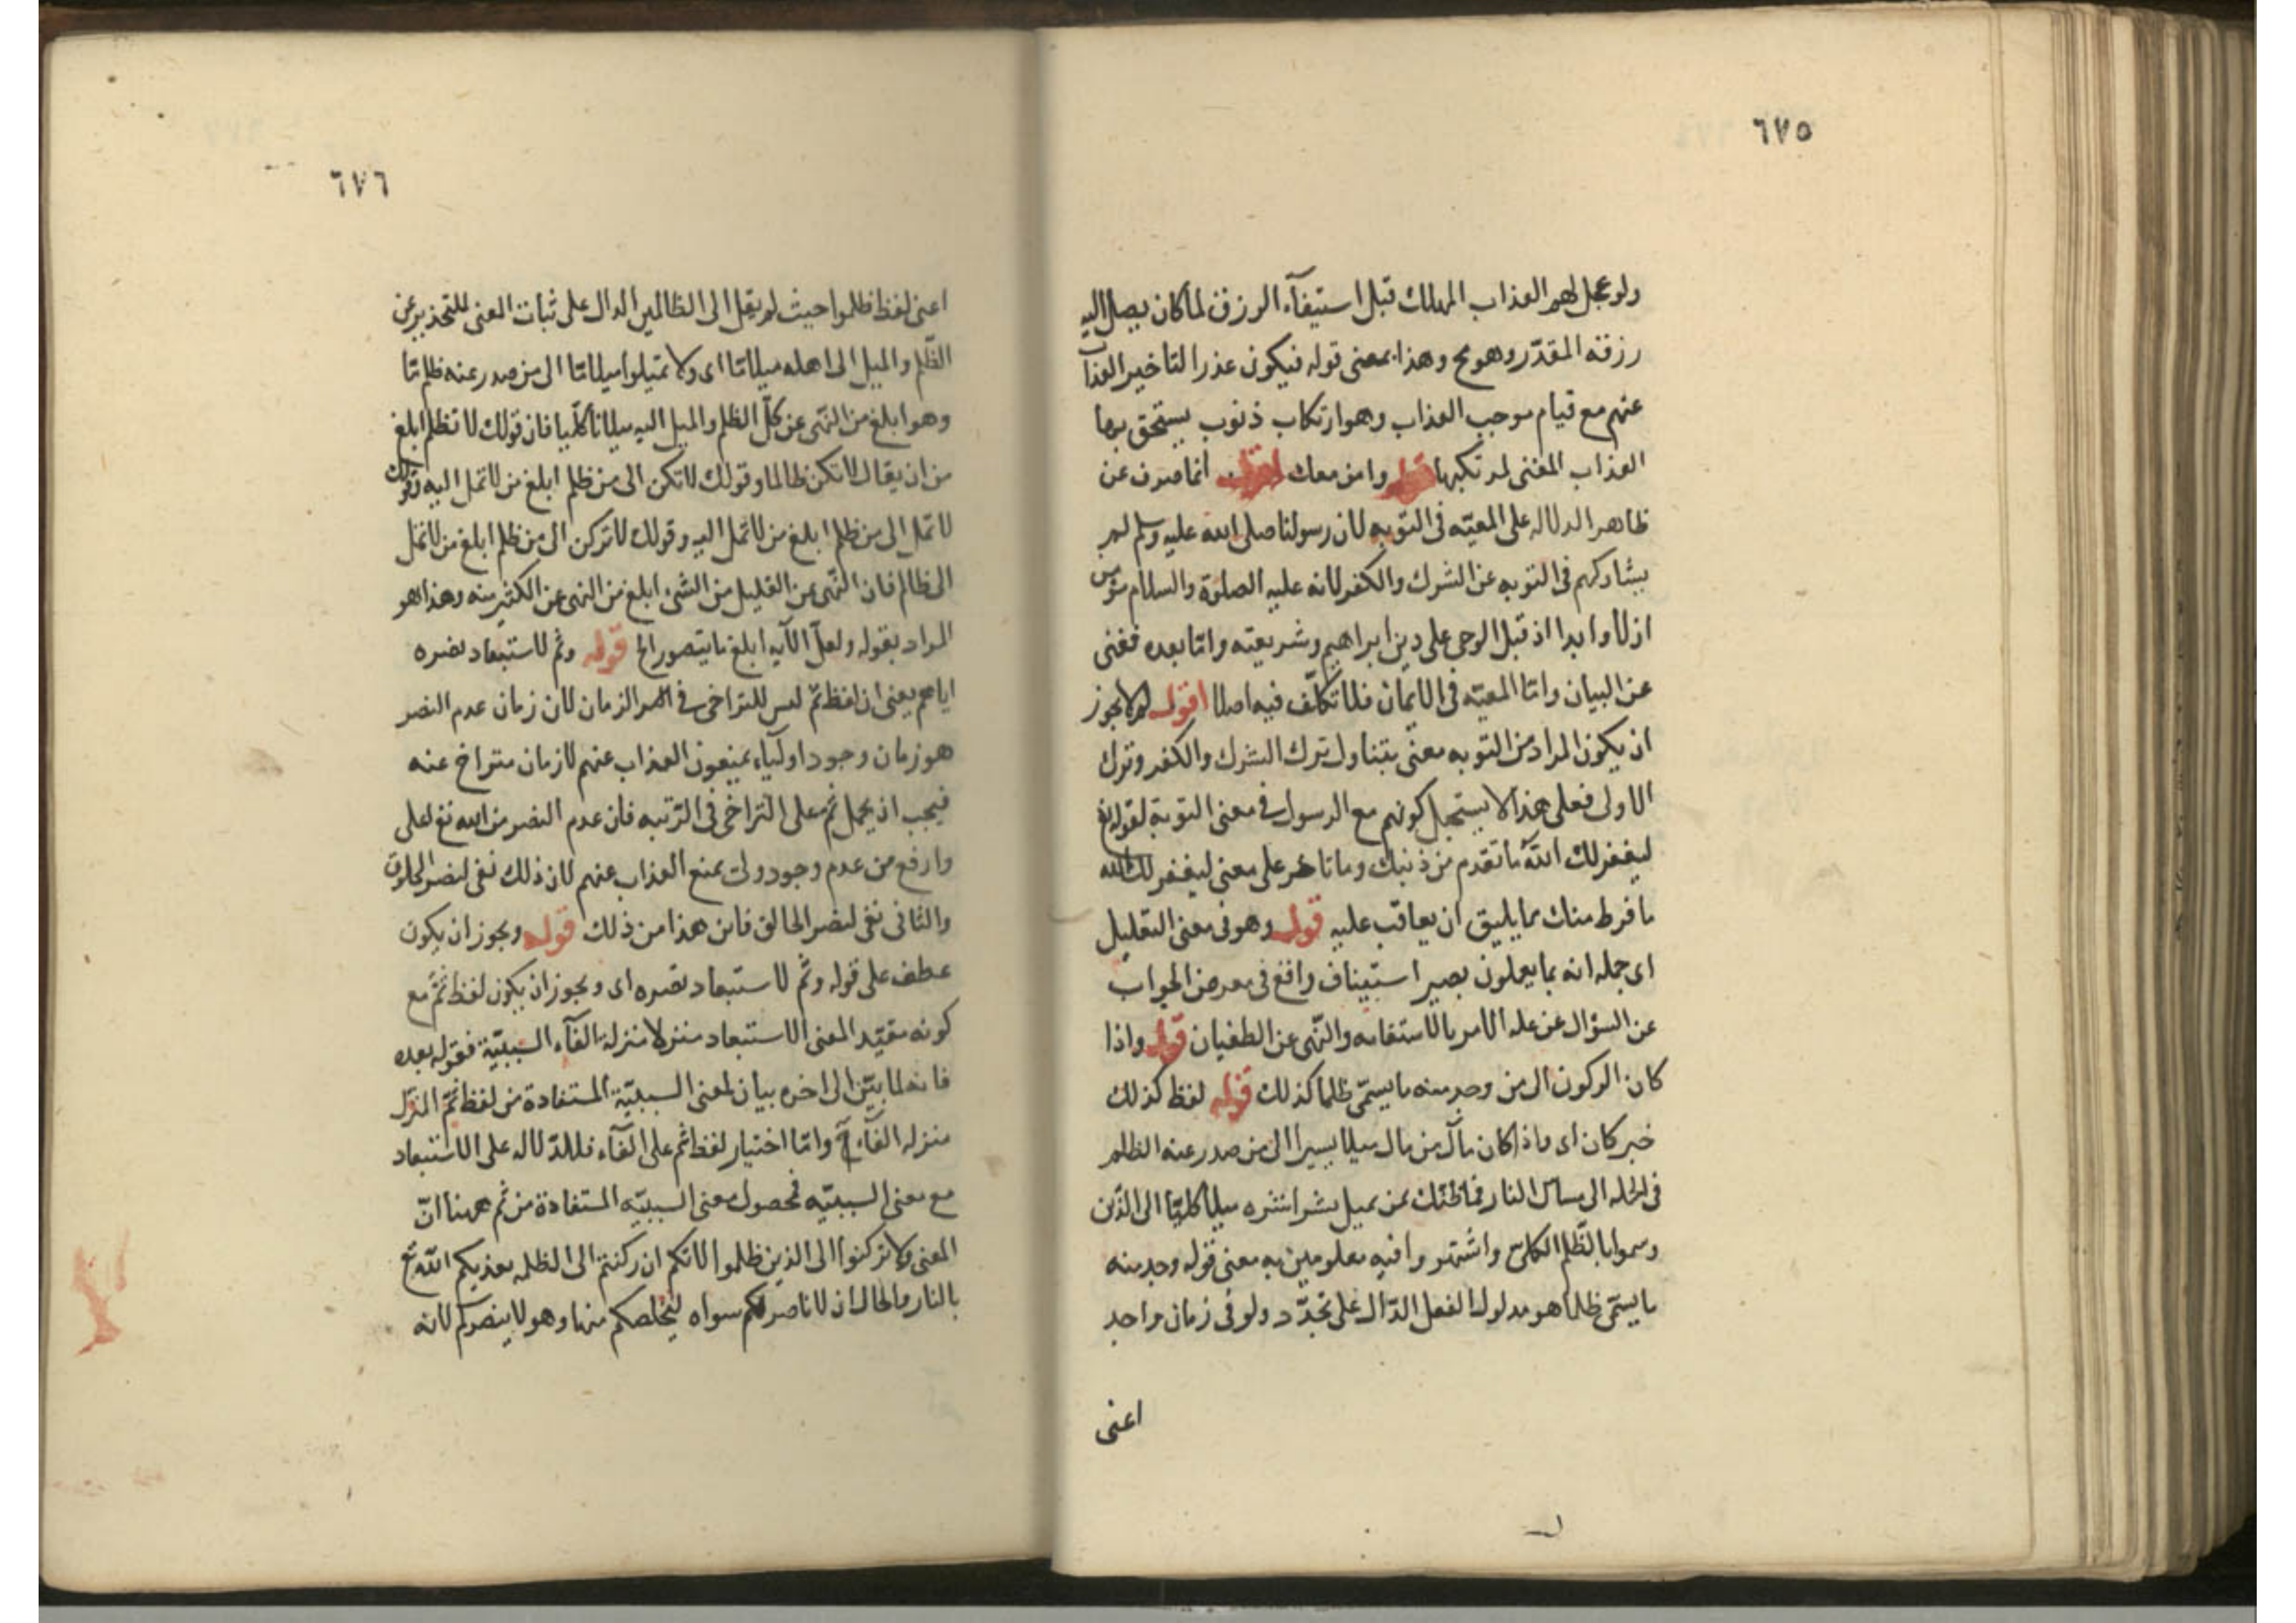 ٦٧٥
ولو عجل لهم العذاب المهلك قبل استيفآء الرزق لما كان يصل اليه
رزقه المقدّر وهو مح وهذا بمعنى قوله فيكون عذرا لتاخير العذاب
عنهم مع قيام موجب العذاب وهو ارتكاب ذنوب يستحق بها
العذاب المفنى لمرتكبها قوله وامن معك انما صرف عن
ظاهر الدلاله على المعيّه فى التوبه لان رسولنا صلى الله عليه وسلم لم
يشاركهم فى التوبه عن الشرك والكفر لانه عليه الصلوة والسلام مؤمن
ازلا وابدا اذ قبل الوحى على دين ابراهيم وشريعته وامّا بعده فغنى
عن البيان وامّا المعيّه فى الايمان فلا تكلّف فيه اصلا اقول لم لا يجوز
ان يكون المراد من التوبه معنى يتناول ترك الشرك والكفر وترك
الاولى فعلى هذا لا يستحيل كونهم مع الرسول فى معنى التوبة لقوله تع
ليغفر لك اللّه ما تقدم من ذنبك وما تاخر على معنى ليغفر لك الله
ما فرط منك مما يليق ان يعاقب عليه قوله وهو فى معنى التعليل
اى جمله انه بما يعملون بصير استيناف واقع فى معرض الجواب
عن السؤال عن عله الامر بالاستقامه والنّهى عن الطغيان قوله واذا
كان الركون الى من وجد منه ما يسمّى ظلما كذلك قوله لفظ كذلك
خبر كان اى واذا كان مآل من مال ميلا يسيرا الى من صدر عنه الظلم
فى الجمله الى مساس النار فما ظنّك بمن يميل بشراشره ميلا كليّا الى الذّين
وسموا بالظّلم الكلىّ واشتهروا فيه معلومين به معنى قوله وجد منه
ما يسمّى ظلما هو مدلول الفعل الدّال على تجدّد ولو فى زمان واحد
اعنى
٦٧٦
اعنى لفظ ظلموا حيث لم يقل الى الظالمين الدال على ثبات المعنى للتحذير عن
الظّلم والميل الى اهله ميلا تا اى ولا تميلوا ميلا تا الى من صدر عنه ظلم تا
وهو ابلغ من النّهى عن كلّ الظلم والميل اليه ميلانا كلّيا فان قولك لا تظلم ابلغ
من ان يقال لا تكن ظالما وقولك لا تكن الى من ظلم ابلغ من لا تمل اليه وقولك
لا تمل الى من ظلم ابلغ من لا تمل اليه وقولك لا تركن الى من ظلم ابلغ من لا تمل
الى ظالم فان النّهى عن القليل من الشئ ابلغ من النهى عن الكثير منه وهذا هو
المراد بقوله ولعلّ الآيه ابلغ ما يتصور الخ قوله وثم لاستبعاد نصره
اياهم يعنى ان لفظ ثمّ ليس للتراخى فى الزمان لان زمان عدم النصر
هو زمان وجود اوليآء يمنعون العذاب عنهم لا زمان متراخ عنه
فيجب ان يحمل ثم على التراخى فى الرّتبه فان عدم النصر من الله تع اعلى
وارفع من عدم وجود ولىّ يمنع العذاب عنهم لان ذلك نفى لنصر المخلوق
والثانى نفى لنصر الخالق فاين هذا من ذلك قوله ويجوز ان يكون
عطف على قوله وثمّ لاستبعاد نصره اى ويجوز ان يكون لفظ ثمّ مع
كونه مقيّد المعنى الاستبعاد منزلا منزلة الفآء السببيّة فقوله بعده
فانه لما بيّن الى اخره بيان لمعنى السببيّة المستفادة من لفظ ثمّ المنزّل
منزله الفآء وامّا اختيار لفظ ثم على الفآء فللدّلاله على الاستبعاد
مع معنى السببيّه فحصول معنى السببيّه المستفادة من ثم ههنا انّ
المعنى ولا تركنوا الى الذين ظلموا لانكم ان ركنتم الى الظلمه يعذبكم اللّه تع
بالنار والحال ان لا ناصر لكم سواه ليخلصكم منها وهو لا ينصركم لانه